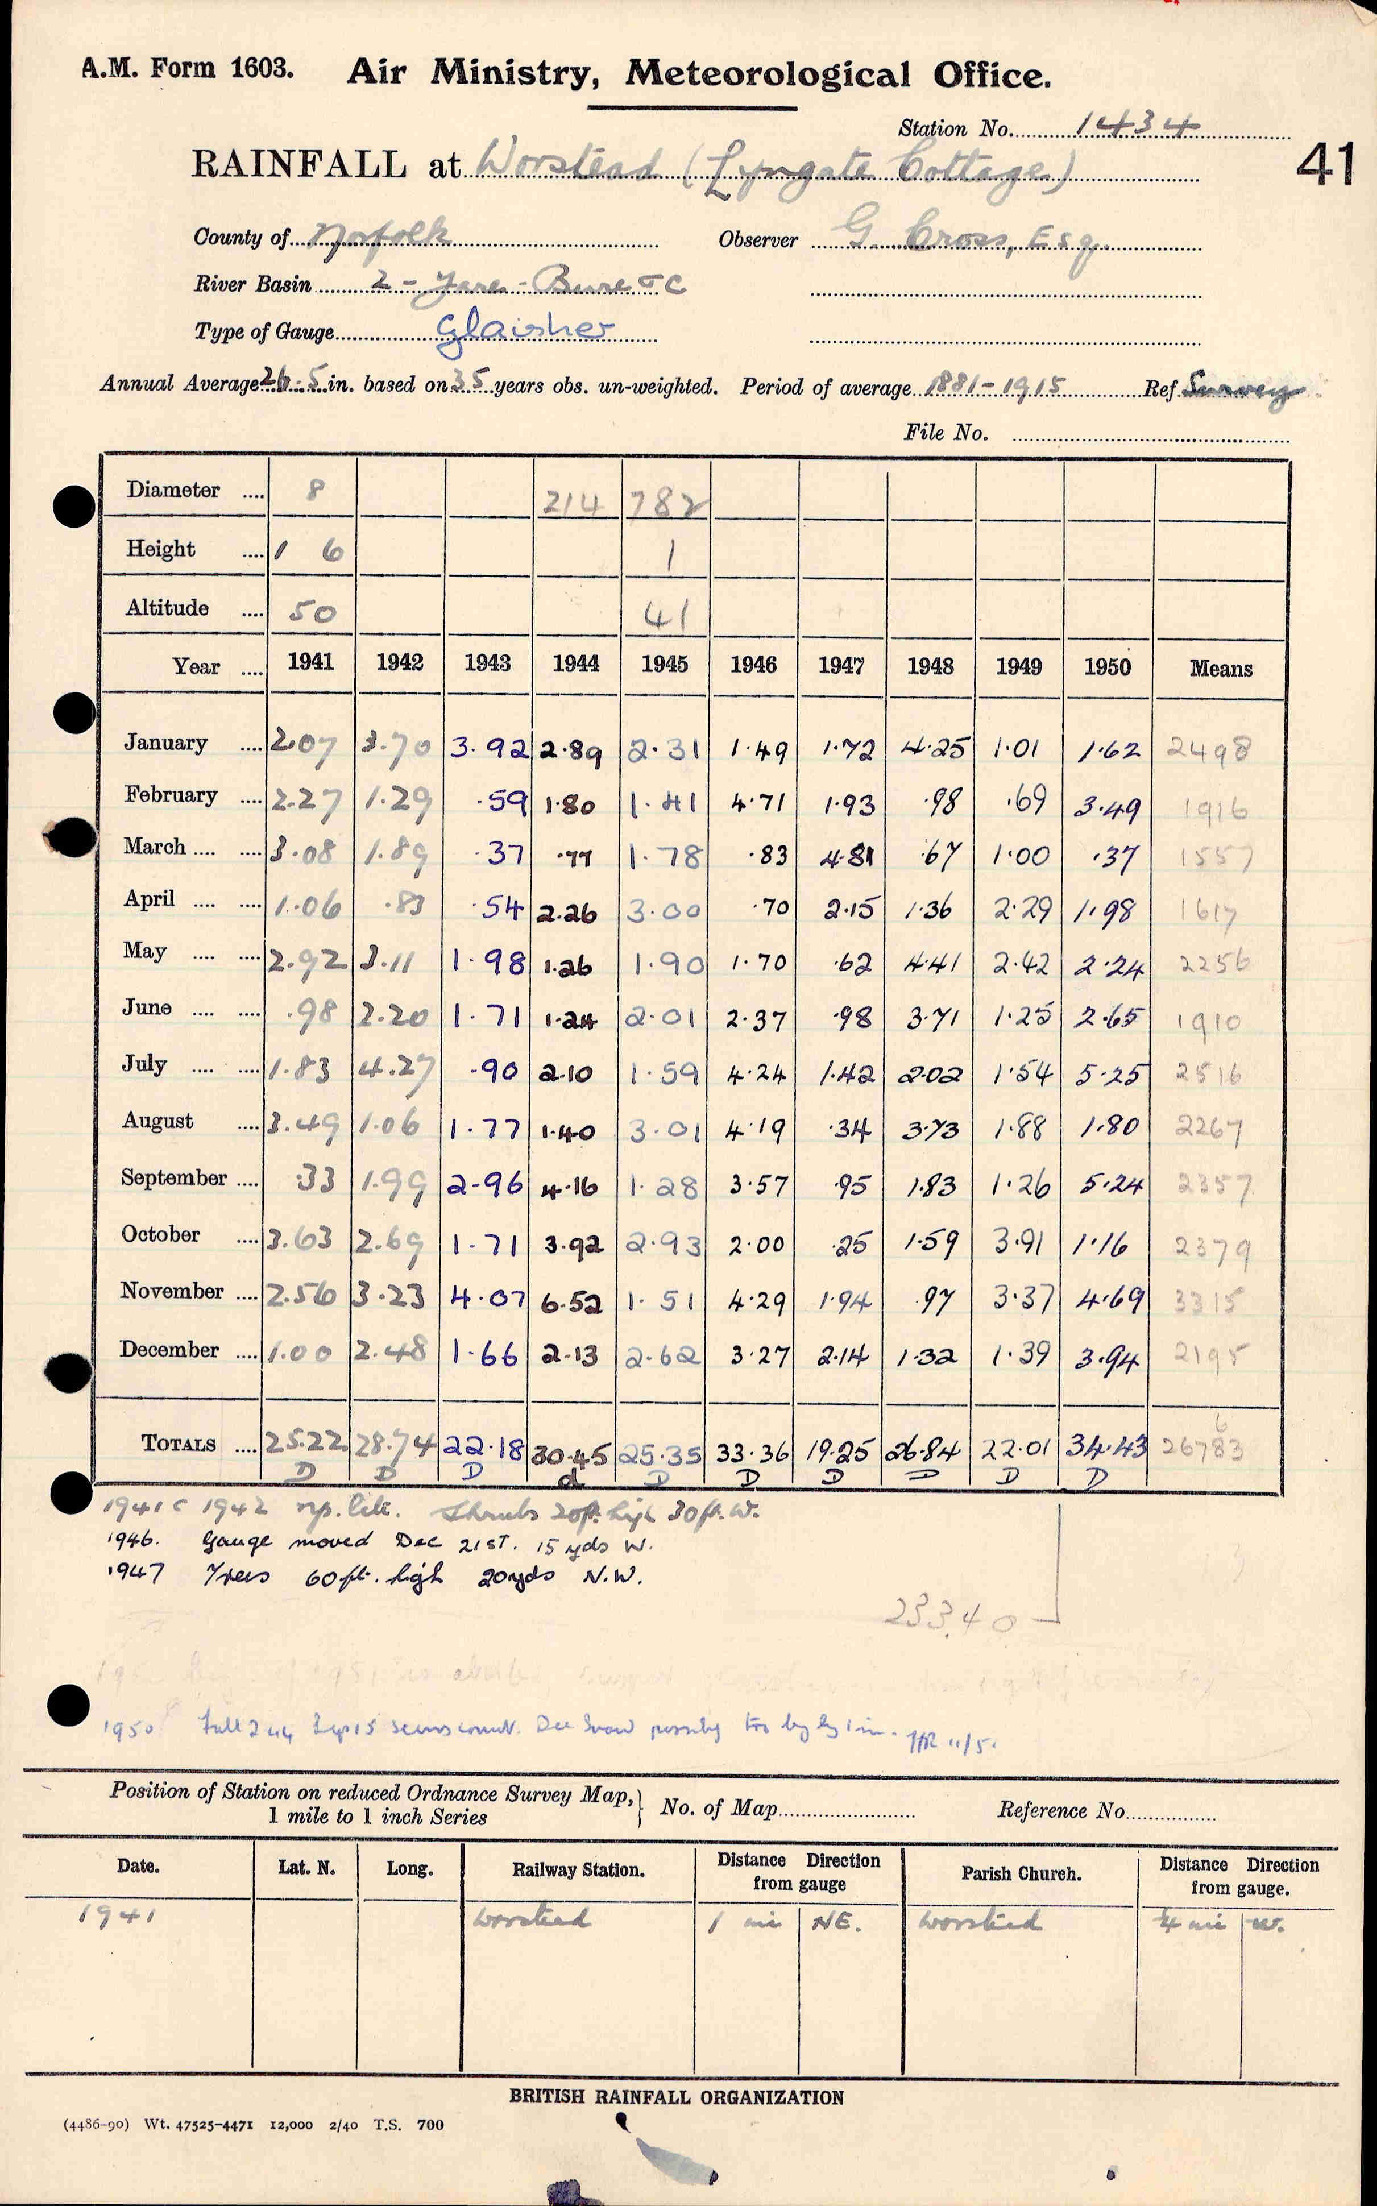 A.M. Form 1603. Air Ministry, Meteorological Office.
Station No. 1434
41
RAINFALL at Worstead (Lyngate Cottage)
County of Norfolk Observer G. Cross, Esq.
River Basin 2 - Yare - Bure &c
Type of Gauge Glaisher
Annual Average 26.5 in. based on 35 years obs. un-weighted. Period of average 1881-1915 Ref Survey
File No.
Diameter .... 8 214 782
Height .... 1 6 1
Altitude .... 50 41
Year .... 1941 1942 1943 1944 1945 1946 1947 1948 1949 1950 Means
January .... 2.07 3.70 3.92 2.89 2.31 1.49 1.72 4.25 1.01 1.62 2498
February .... 2.27 1.29 .59 1.80 1.41 4.71 1.93 .98 .69 3.49 1916
March .... .... 3.08 1.89 .37 .77 1.78 .83 4.81 .67 1.00 .37 1557
April .... .... 1.06 .83 .54 2.26 3.00 .70 2.15 1.36 2.29 1.98 1617
May .... .... 2.92 3.11 1.98 1.26 1.90 1.70 .62 4.41 2.42 2.24 2256
June .... .... .98 2.20 1.71 1.24 2.01 2.37 .98 3.71 1.25 2.65 1910
July .... .... 1.83 4.27 .90 2.10 1.59 4.24 1.42 2.02 1.54 5.25 2516
August .... 3.49 1.06 1.77 1.40 3.01 4.19 .34 3.73 1.88 1.80 2267
September .... .33 1.99 2.96 4.16 1.28 3.57 .95 1.83 1.26 5.24 2357
October .... 3.63 2.69 1.71 3.92 2.93 2.00 .25 1.59 3.91 1.16 2379
November .... 2.56 3.23 4.07 6.52 1.51 4.29 1.94 .97 3.37 4.69 3315
December .... 1.00 2.48 1.66 2.13 2.62 3.27 2.14 1.32 1.39 3.94 2195
6
TOTALS .... 25.22 28.74 22.18 30.45 25.35 33.36 19.25 26.84 22.01 34.43 26783
D D D d D D D D D D
1941 & 1942 Shrubs 20ft. high 30ft. W.
1946. Gauge moved Dec 21ST. 15 yds W.
1947 Trees 60ft. high 20yds N.W.
233.40
1950 Fall 2.44 Sep 15 seems correct. Dec Snow possibly too big by 1 in. 11/51
Position of Station on reduced Ordnance Survey Map, } No. of Map Reference No.
1 mile to 1 inch Series
Date. Lat. N. Long. Railway Station. Distance Direction from gauge Parish Church. Distance Direction from gauge.
1941 Worstead 1 mi NE. Worstead ¼ mi W.
BRITISH RAINFALL ORGANIZATION
(4486-90) Wt. 47525-4471 12,000 2/40 T.S. 700